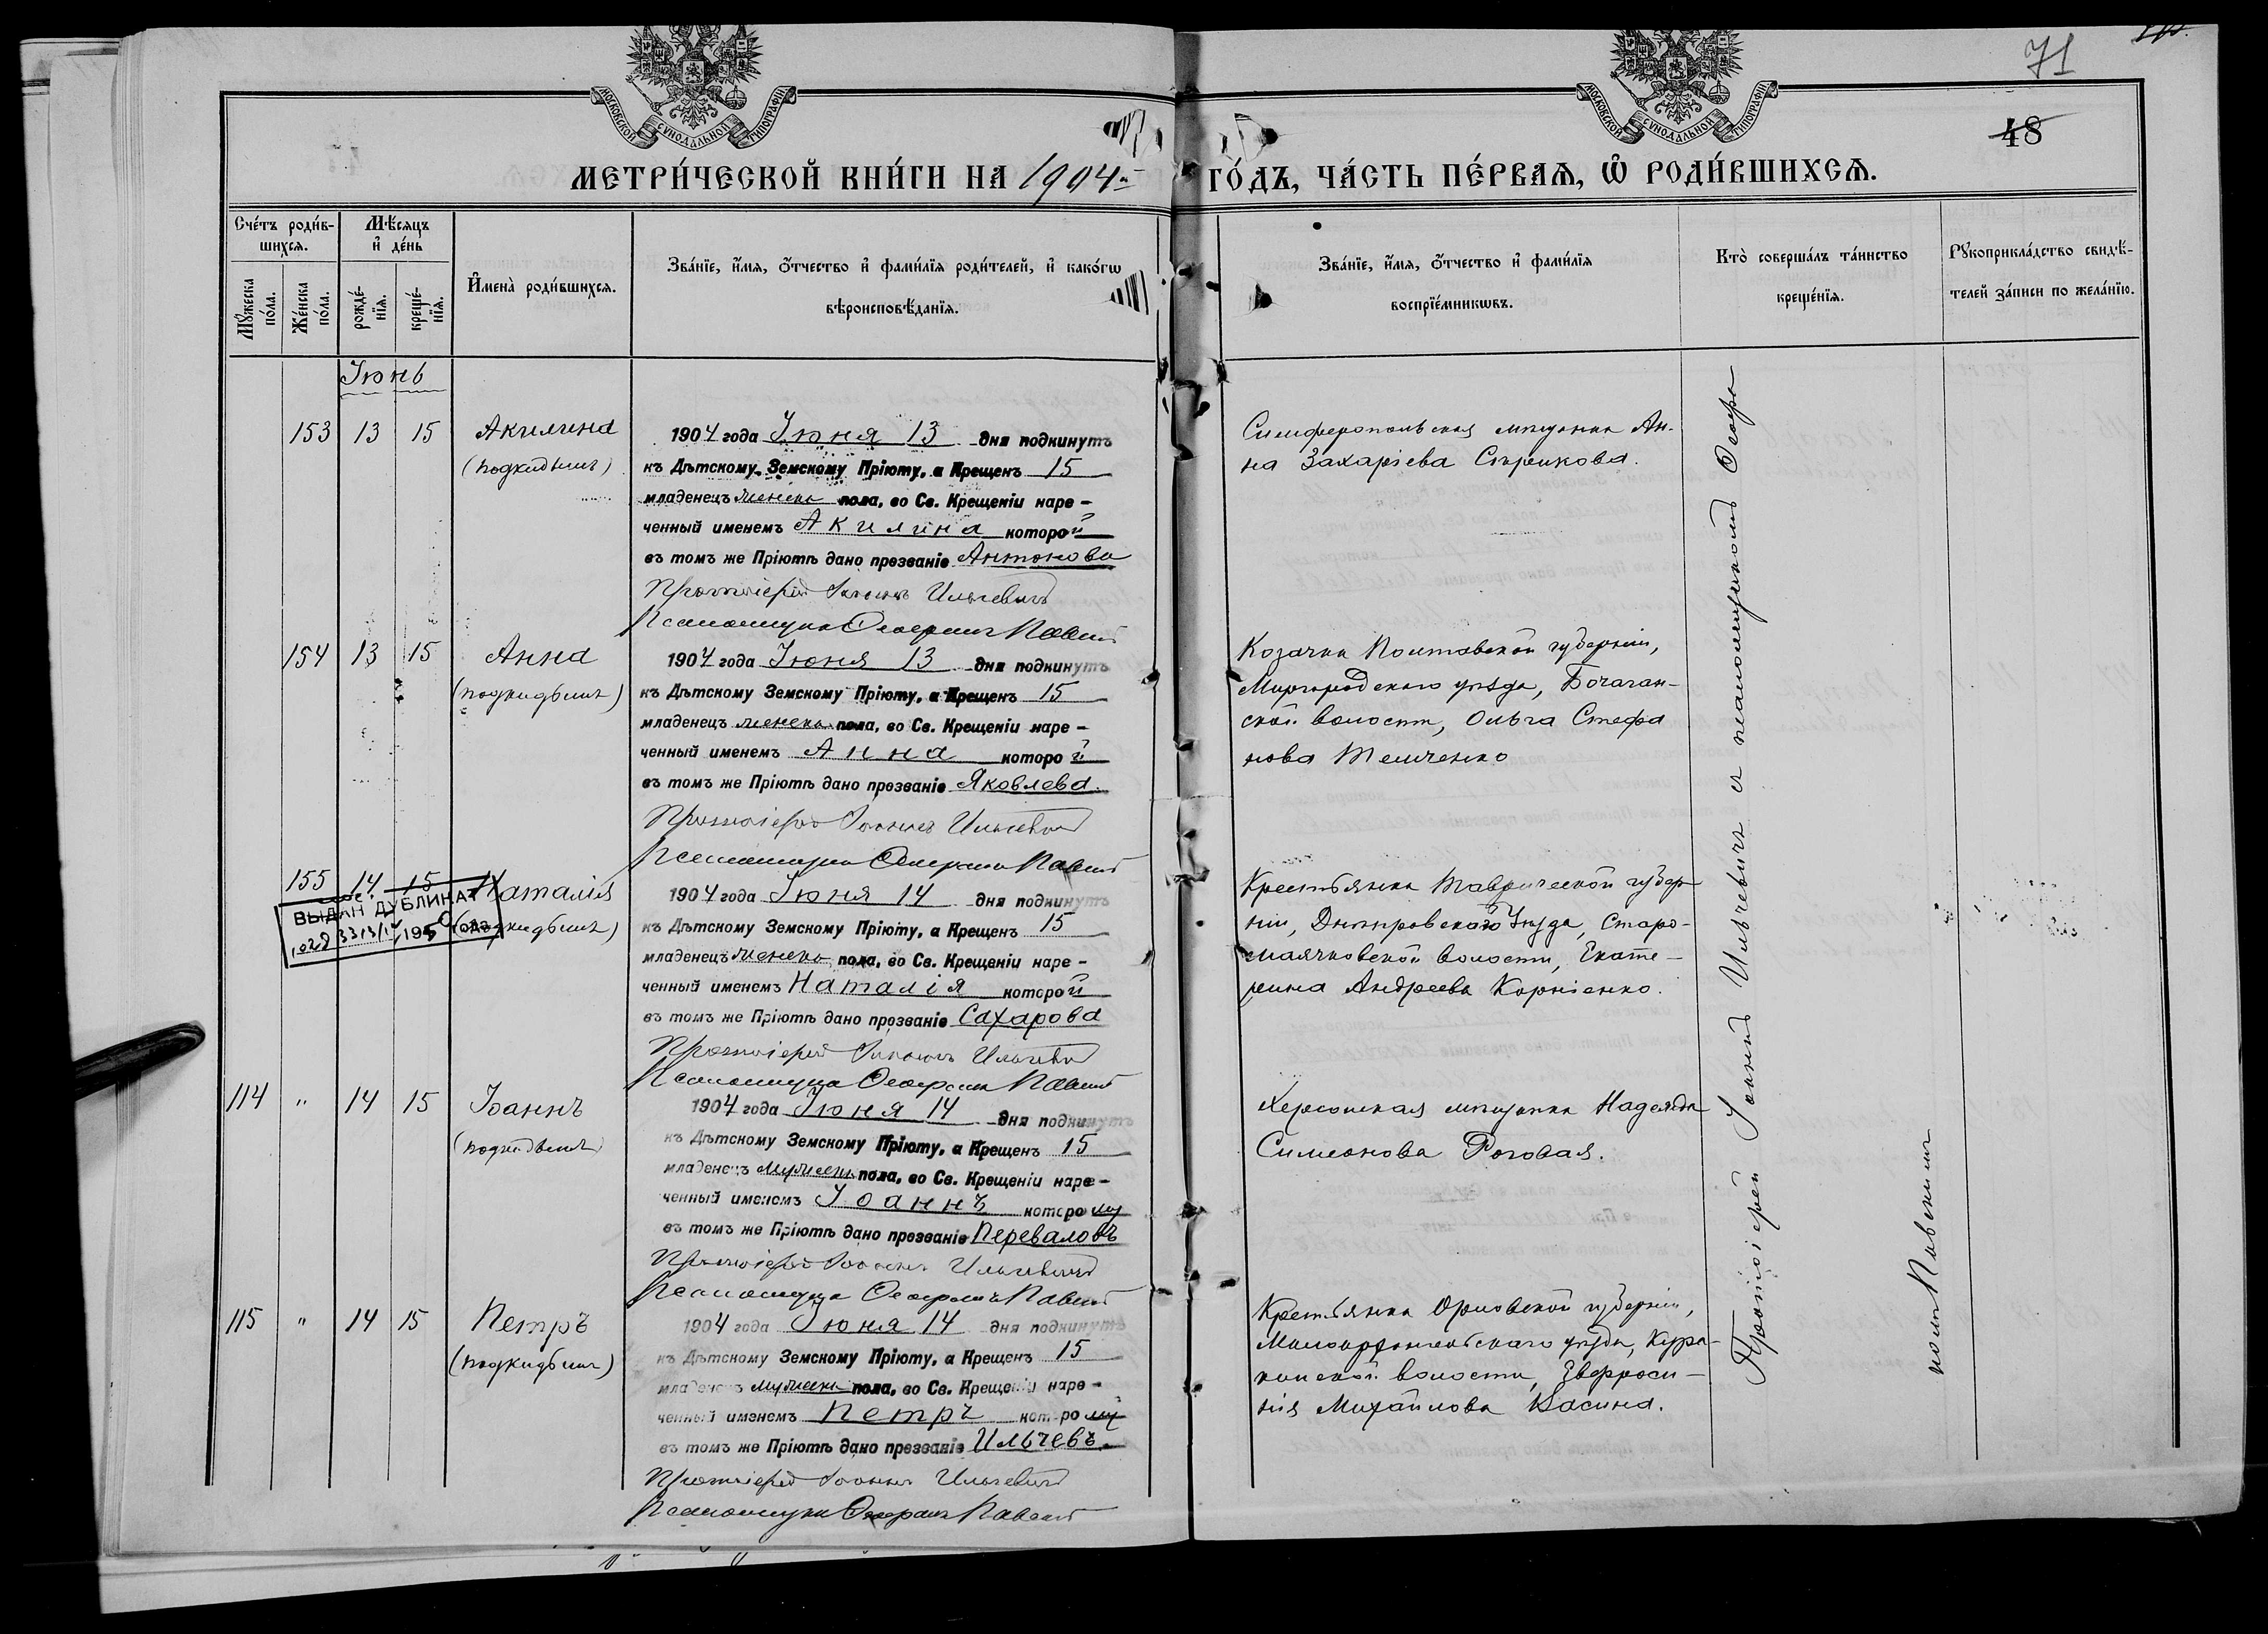 71
48
МОСКОВСКОЙ СѴНОДАЛЬНОЙ ТИПОГРАФІИ
МОСКОВСКОЙ СѴНОДАЛЬНОЙ ТИПОГРАФІИ
МЕТРИ́ЧЕСКОЙ КНИ́ГИ НА 1904й ГО́ДЪ, ЧА́СТЬ ПЕ́РВАѦ, Ѡ҆ РОДИ́ВШИХСѦ.
Сче́тъ роди́в-
шихсѧ.
Мꙋ́жеска по́ла.
Же́нска по́ла.
Мѣ́сяцъ
и҆ де́нь
рожде́-
нїѧ.
креще́-
нїѧ.
И҆мена̀ роди́вшихсѧ.
Зва́нїе, и҆́мѧ, ѻ҆́тчество и҆ фами́лїѧ роди́телей, и҆ како́гѡ
вѣроисповѣ́данїѧ.
Зва́нїе, и҆́мѧ, ѻ҆́тчество и҆ фами́лїѧ
воспрїе́мникѡвъ.
Кто̀ соверша́лъ та́инство
креще́нїѧ.
Рꙋкоприкла́дство свидѣ́-
телей за́писи по жела́нїю.
Іюнь
153 13 15 Акилина
(подкидышъ)
1904 года Іюня 13 дня подкинутъ
къ Дѣтскому Земскому Пріюту, а Крещенъ 15
младенецъ женска пола, во Св. Крещеніи наре-
ченный именемъ Акилина которой
въ томъ же Пріютѣ дано прозваніе Антонова
Протоіерей Іоаннъ Ильчевичъ
Псаломщикъ Павск
Симферопольская мѣщанка Ан-
на Захаріева
154 13 15 Анна
(подкидышъ)
1904 года Іюня 13 дня подкинутъ
къ Дѣтскому Земскому Пріюту, а Крещенъ 15
младенецъ женска пола, во Св. Крещеніи наре-
ченный именемъ Анна которой
въ томъ же Пріютѣ дано прозваніе Яковлева.
Протоіерей Іоаннъ Ильчевичъ
Псаломщикъ
Козачка Полтавской губерніи,
Миргородскаго уѣзда,
ской волости, Ольга Стефа
нова Темченко
155 14 15 Наталія
(подкидышъ)
ВЫДАН ДУБЛИКАТ
1950 года
1904 года Іюня 14 дня подкинутъ
къ Дѣтскому Земскому Пріюту, а Крещенъ 15
младенецъ женска пола, во Св. Крещеніи наре-
ченный именемъ Наталія которой
въ томъ же Пріютѣ дано прозваніе Сахарова
Протоіерей Іоаннъ Ильчевичъ
Псаломщикъ
Крестьянка Таврической губер-
ніи, Днѣпровскаго Уѣзда, Старо-
маячковской волости, Екате-
рина Андреева Корніенко.
114 " 14 15 Іоаннъ
(подкидышъ)
1904 года Іюня 14 дня подкинутъ
къ Дѣтскому Земскому Пріюту, а Крещенъ 15
младенецъ мужеска пола, во Св. Крещеніи наре-
ченный именемъ Іоаннъ которому
въ томъ же Пріютѣ дано прозваніе Переваловъ
Протоіерей Іоаннъ Ильчевичъ
Псаломщикъ
Херсонская мѣщанка Надежда
Симеонова Роговая.
115 " 14 15 Петръ
(подкидышъ)
1904 года Іюня 14 дня подкинутъ
къ Дѣтскому Земскому Пріюту, а Крещенъ 15
младенецъ мужеска пола, во Св. Крещеніи наре-
ченный именемъ Петръ которому
въ томъ же Пріютѣ дано прозваніе Ильчевъ.
Протоіерей Іоаннъ Ильчевичъ
Псаломщикъ
Крестьянка Орловской губерніи,
Малоархангельскаго уѣзда, Кура-
кинской волости, Евфроси-
нія Михайлова Васина.
Протоіерей Іоаннъ Ильчевичъ съ псаломщикомъ